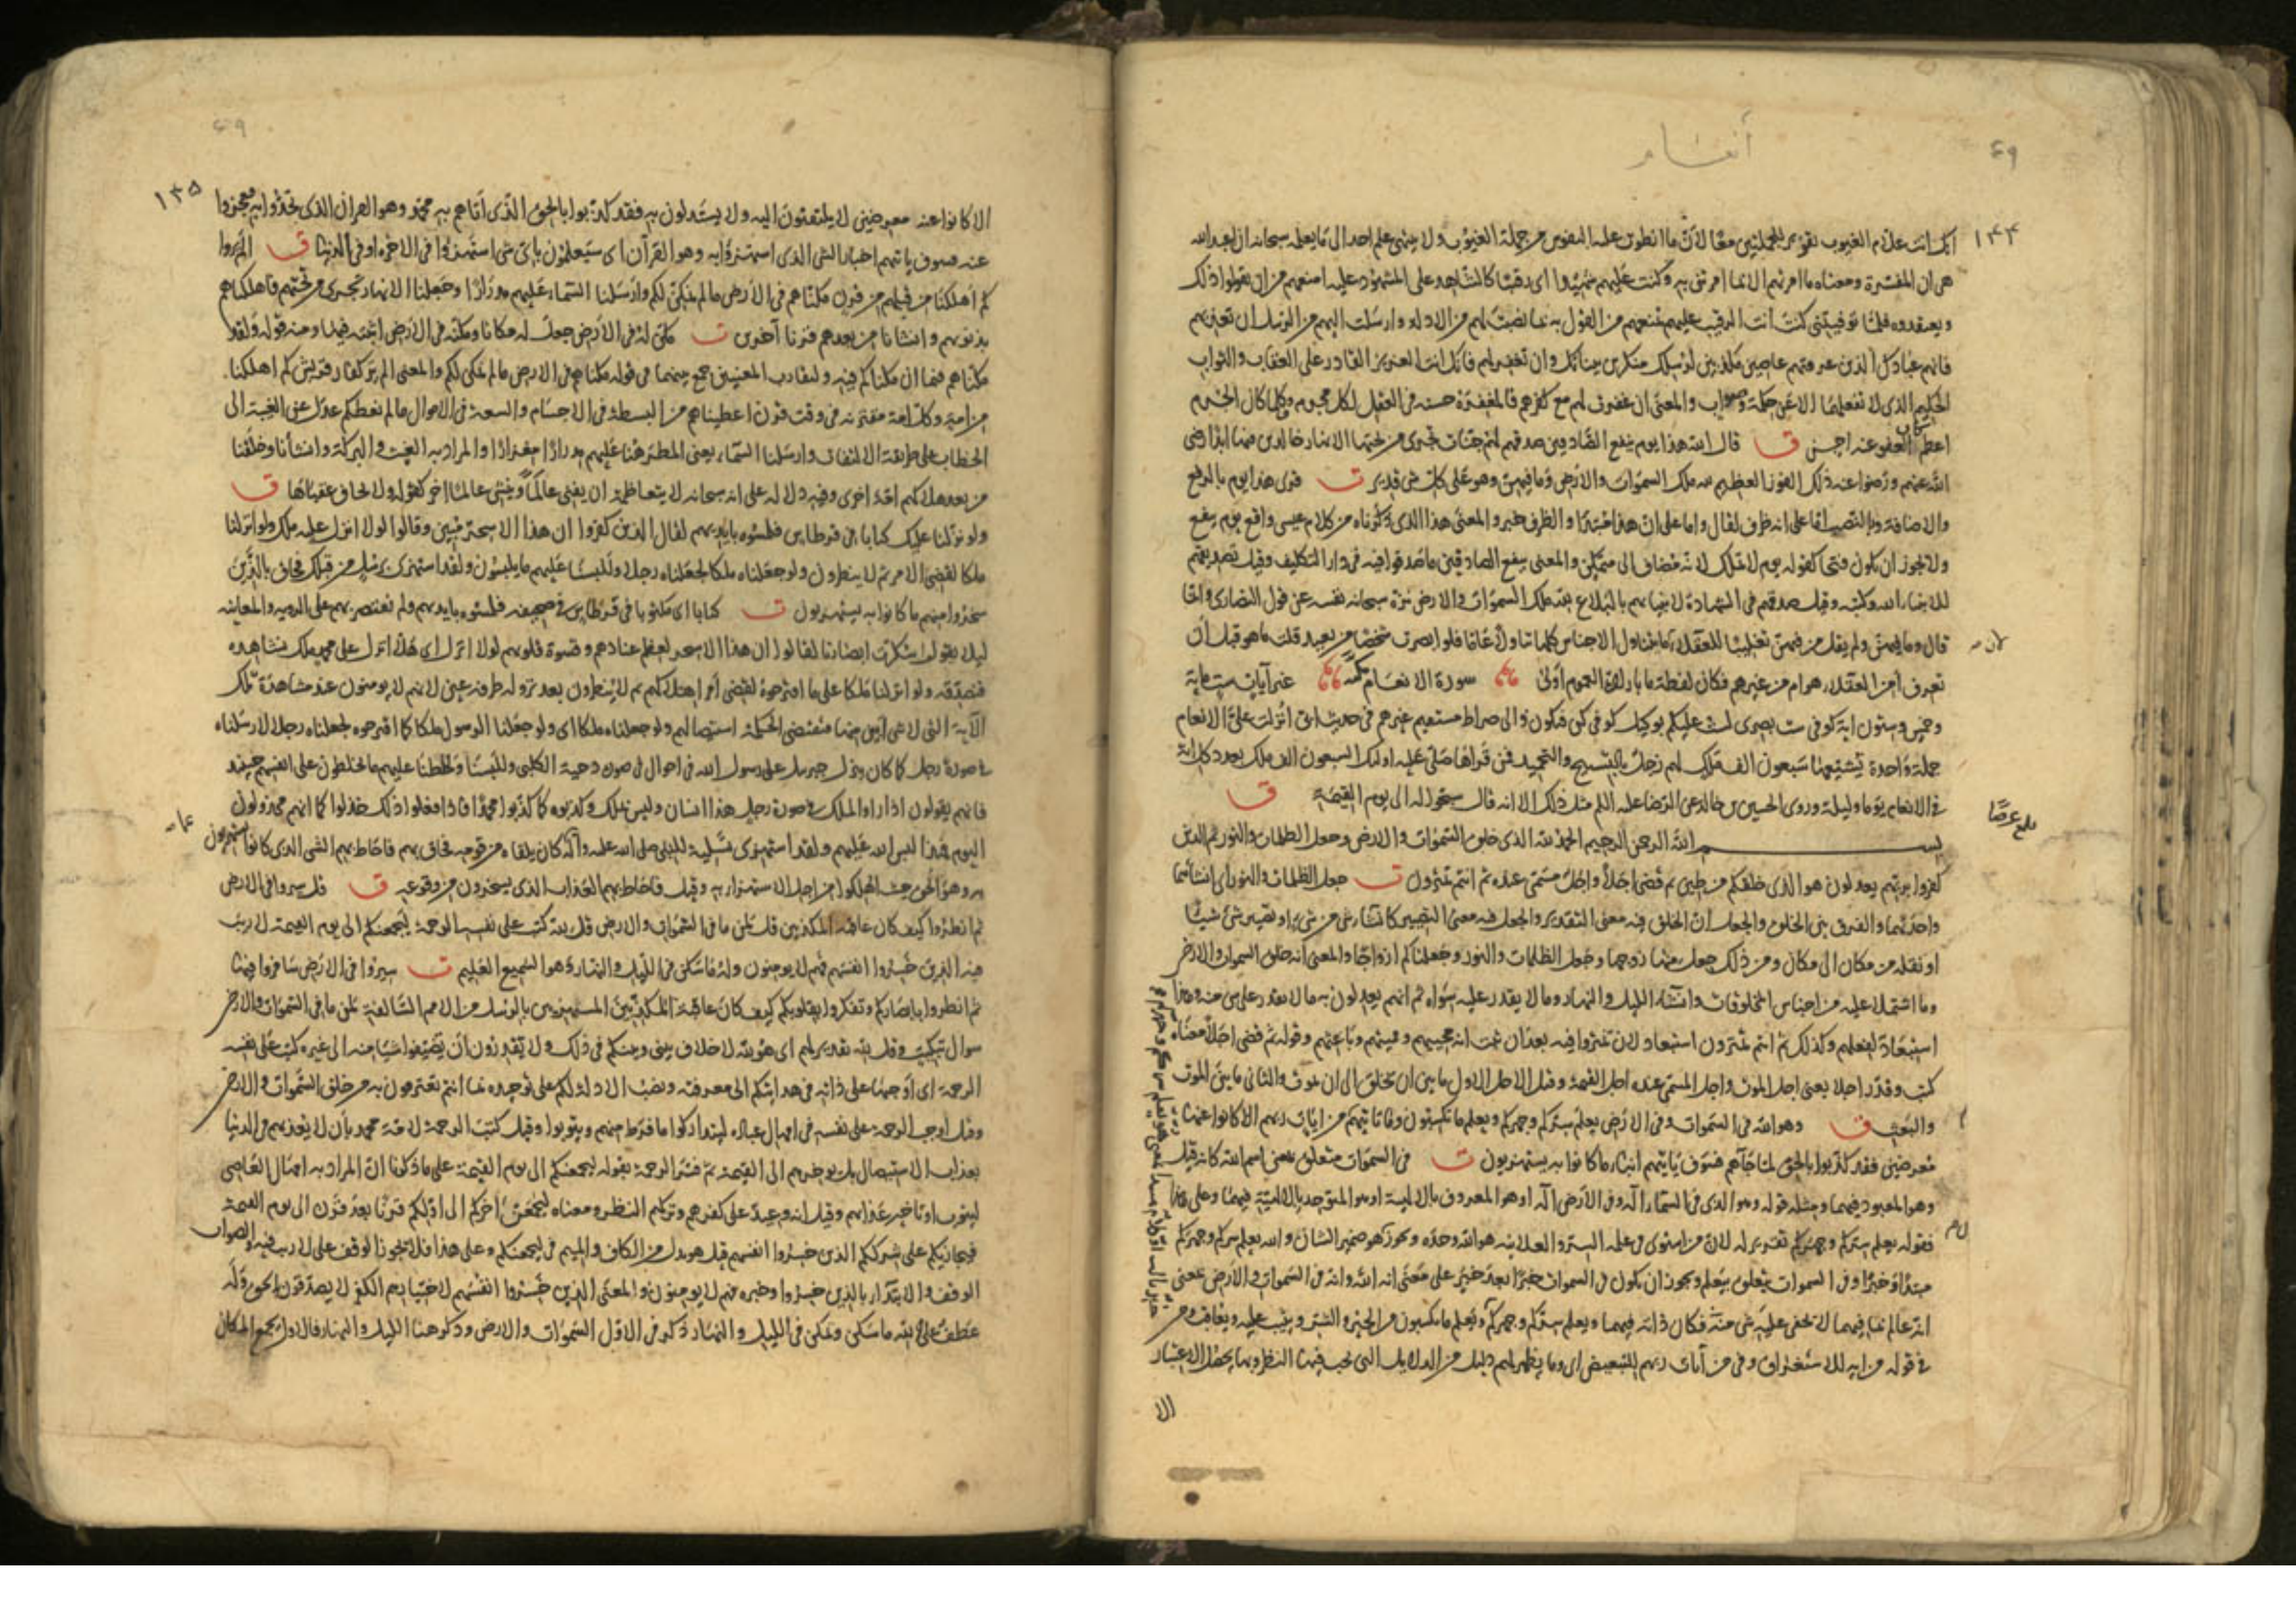 أنعام
٤٩
١٣٤
انك انت علام الغيوب تقرير للجملتين معًا لانّ ما انطوت عليه النفوس من جملة الغيوب ولا ينتهي علم احد الى ما يعلمه سبحانه ان اعبدوا الله
هي ان المفسّرة ومعناه ما امرتهم الا بما امرتني به وكنت عليهم شهيدا اى رقيبًا كالشاهد على المشهود عليه امنعهم من ان يقولوا ذلك
ويعتقدوه فلمّا توفيتنى كنت انت الرقيب عليهم تمنعهم من القول به بما نصبت لهم من الادلة وارسلت اليهم من الرسل ان تعذبهم
فانهم عبادك الذين عرفتهم عاصين مكذبين لرسلك منكرين بيناتك وان تغفر لهم فانك انت العزيز القادر على العقاب والثواب
الحكيم الذى لا تفعلهما الا عن حكمة وصواب والمعنى ان غفرت لهم مع كفرهم فالمغفرة حسنة فى العقل لكل مجرم وكلما كان الجرم
اعظم كان العفو عنه احسن ق قال الله هذا يوم ينفع الصّادقين صدقهم لهم جنّات تجرى من تحتها الانهار خالدين فيها ابدًا رضى
الله عنهم ورضوا عنه ذلك الفوز العظيم لله ملك السموات والارض وما فيهنّ وهو على كلّ شئ قدير ت قرئ هذا يوم بالرفع
والاضافة وبالنصب امّا على انه ظرف لقال واما على انّ هذا مبتدأ والظرف خبر والمعنى هذا الذى ذكرناه من كلام عيسى واقع يوم ينفع
ولا يجوز ان يكون فتحًا كقوله يوم لا تملك لانّه مضاف الى متمكّن والمعنى ينفع الصادقين ما صدقوا فيه فى دار التكليف وقيل تصديقهم
لانبياء الله وكتبه وقيل صدقهم فى الشهادة لانبيائهم بالبلاغ لله ملك السموات والارض نزّه سبحانه نفسه عن قول النصارى وامّا
قال وما فيهنّ ولم يقل من فيهنّ تغليبًا للعقلاء لانّ ما يتناول الاجناس كلها تناولًا عامًا فلو ابصرت شخصًا من بعيد قلت ما هو قبل ان
تعرف أمن العقلاء هو ام من غيرهم فكان لفظة ما بارادة العموم اولى سورة الانعام مكيّة غير آيات ست مائة
وخمس وستون اية كوفى ست بصرى لست عليكم بوكيل كوفى كن فيكون والى صراط مستقيم غيرهم فى حديث ابىّ انزلت علىّ الانعام
جملة واحدة يشيّعها سبعون الف ملك لهم زجل بالتسبيح والتحميد فمن قرأها صلّى عليه اولئك السبعون الف ملك بعدد كل اية
فى الانعام يومًا وليلة وروى الحسين بن خالد عن الرضا عليه السلام مثل ذلك الا انه قال سبّحوا له الى يوم القيمة ق
بلغ عرضًا
بسم الله الرحمن الرحيم الحمد لله الذى خلق السموات والارض وجعل الظلمات والنور ثم الذين
كفروا بربّهم يعدلون هو الذى خلقكم من طين ثم قضى اجلًا واجل مسمّى عنده ثم انتم تمترون ت جعل الظلمات والنور اى انشأهما
واحدثهما والفرق بين الخلق والجعل انّ الخلق فيه معنى التقدير والجعل فيه معنى التصيير كانشاء شئ من شئ او تصيير شئ شيئًا
او نقله من مكان الى مكان ومن ذلك وجعل منها زوجها وجعل الظلمات والنور وجعلناكم ازواجًا والمعنى انه خلق السموات والارض
وما اشتملا عليه من اجناس المخلوقات وانشأ الليل والنهار وما لا يقدر عليه سواه ثم انهم يعدلون به ما لا يقدر على شئ منه وهذا
استبعاد لفعلهم وكذلك ثم انتم تمترون استبعاد لان تمتروا فيه بعد ان ثبت انه محييهم ومميتهم وباعثهم وقوله ثم قضى اجلًا معناه
كتب وقدّر اجلا يعنى اجل الموت واجل مسمّى عنده اجل القيمة وقيل الاجل الاول ما بين ان يخلق الى ان يموت والثانى ما بين الموت
والبعث ق وهو الله فى السموات وفى الارض يعلم سرّكم وجهركم ويعلم ما تكسبون وما تاتيهم من آيات ربهم الا كانوا عنها
معرضين فقد كذّبوا بالحق لمّا جآءهم فسوف يأتيهم انباء ما كانوا به يستهزءون ت فى السموات متعلق بمعنى اسم الله كانه قيل
وهو المعبود فيهما ومثله قوله وهو الذى فى السماء اله وفى الارض اله او هو المعروف بالالهية او هو المتوحد بالالهيّة فيهما وعلى هذا
فقوله يعلم سرّكم وجهركم تقرير له لانّ من استوى فى علمه السر والعلانية هو الله وحده ويجوز كون هو ضمير الشان والله يعلم سركم وجهركم
مبتدأ وخبرًا وفى السموات يتعلق بيعلم ويجوز ان يكون فى السموات خبرًا بعد خبر على معنى انه الله وانه فى السموات والارض بمعنى
انه عالم بما فيهما لا يخفى عليه شئ منه فكان ذاته فيهما ويعلم سرّكم وجهركم ويعلم ما تكسبون من الخير والشر ويثيب عليه ويعاقب ومن
فى قوله من اية للاستغراق وفى من آيات ربهم للتبعيض اى وما يظهر لهم دليل من الدلايل التى يجب فيها النظر وبها يحصل الاعتبار
الا
٤٩
١٣٥
الا كانوا عنه معرضين لا يلتفتون اليه ولا يستدلون به فقد كذّبوا بالحق الذى اتاهم به محمّد وهو القران الذى تحدّوا به فعجزوا
عنه فسوف ياتيهم اخبار الشئ الذى استهزءوا به وهو القرآن اى سيعلمون باىّ شئ استهزءوا فى الاخرة او فى الدنيا ق الم يروا
كم اهلكنا من قبلهم من قرن مكنّاهم فى الارض ما لم نمكّن لكم وارسلنا السماء عليهم مدرارًا وجعلنا الانهار تجرى من تحتهم فاهلكناهم
بذنوبهم وانشأنا من بعدهم قرنا آخرين ت مكّن له فى الارض جعل له مكانا ومكّنه فى الارض اثبته فيها ومنه قوله ولقد
مكّناهم فيما ان مكّناكم فيه ولتقارب المعنيين جمع بينهما فى قوله مكناهم فى الارض ما لم نمكن لكم والمعنى الم ير كفار قريش كم اهلكنا
من امة وكل امة مقترنة فى وقت قرن اعطيناهم من البسطة فى الاجسام والسعة فى الاموال ما لم نعطكم عدل عن الغيبة الى
الخطاب على طريقة الالتفات وارسلنا السمآء يعنى المطر هنا عليهم مدرارًا مغزارًا والمراد به الغيث والبركة وانشأنا وخلقنا
من بعد هلاكهم امّة اخرى وفيه دلالة على انه سبحانه لا يتعاظمه ان يفنى عالمًا وينشئ عالمًا اخر كقوله ولا يخاف عقباها ق
ولو نزّلنا عليك كتابًا فى قرطاس فلمسوه بايديهم لقال الذين كفروا ان هذا الا سحر مبين وقالوا لولا انزل عليه ملك ولو انزلنا
ملكا لقضى الامر ثم لا ينظرون ولو جعلناه ملكا لجعلناه رجلا وللبسنا عليهم ما يلبسون ولقد استهزئ برسل من قبلك فحاق بالذين
سخروا منهم ما كانوا به يستهزءون ت كتابا اى مكتوبا فى قرطاس فى صحيفة فلمسوه بايديهم ولم نقتصر بهم على الروية والمعاينة
ليلا يقولوا سكّرت ابصارنا لقالوا ان هذا الا سحر لعظم عنادهم وقسوة قلوبهم لولا انزل اى هلّا انزل على محمد ملك نشاهده
فنصدّقه ولو انزلنا ملكا على ما اقترحوه لقضى أمر اهلاكهم ثم لا ينظرون بعد نزوله طرفة عين لانهم لا يومنون عند مشاهدة تلك
الآية التى لا شئ ابين منها فتقتضى الحكمة استيصالهم ولو جعلناه ملكا اى ولو جعلنا الرسول ملكا كما اقترحوه لجعلناه رجلا لارسلناه
فى صورة رجل كما كان ينزل جبريل على رسول الله فى احوال فى صورة دحية الكلبى وللبسنا ولخلطنا عليهم ما يخلطون على انفسهم حينئذ
فانهم يقولون اذا راوا الملك فى صورة رجل هذا انسان وليس بملك وكذبوه كما كذّبوا محمدًا فاذا فعلوا ذلك خذلوا كما انهم مخذولون
اليوم فهذا لبس الله عليهم ولقد استهزئ تسلية للنبى صلى الله عليه وآله كان يلقاه من قومه فحاق بهم فاحاط بهم الشئ الذى كانوا يستهزءون
به وهو الحق حيث اهلكوا من اجل الاستهزاء به وقيل فاحاط بهم العذاب الذى يسخرون من وقوعه ق قل سيروا فى الارض
ثم انظروا كيف كان عاقبة المكذبين قل لمن ما فى السموات والارض قل لله كتب على نفسه الرحمة ليجمعنكم الى يوم القيمة لا ريب
فيه الذين خسروا انفسهم فهم لا يومنون وله ما سكن فى الليل والنهار وهو السميع العليم ت سيروا فى الارض سافروا فيها
ثم انظروا بابصاركم وتفكروا بقلوبكم كيف كان عاقبة المكذّبين المستهزءين بالرسل من الامم السّالفة لمن ما فى السموات والارض
سوال تبكيت وقل لله تقرير لهم اى هو لله لا خلاف بينى وبينكم فى ذلك ولا تقدرون ان تضيفوا شيًا منه الى غيره كتب على نفسه
الرحمة اى اوجبها على ذاته فى هدايتكم الى معرفته ونصب الادلة لكم على توحيده بما انتم تعترفون به من خلق السموات والارض
وقيل اوجب الرحمة على نفسه فى امهال عباده ليتداركوا ما فرّط منهم ويتوبوا وقيل كتب الرحمة لامّة محمد بان لا يعذبهم فى الدنيا
بعذاب الاستيصال بل يوخرهم الى القيمة ثم فسّر الرحمة بقوله ليجمعنكم الى يوم القيمة على ما ذكرنا انّ المراد به امهال العاصى
ليتوب او تاخير عذابهم وقيل انه وعيد على كفرهم وتركهم النظر ومعناه ليجمعنّ اخركم الى اوّلكم قرنًا بعد قرن الى يوم القيمة
فيجازيكم على شرككم الذين خسروا انفسهم قيل هو بدل من الكاف والميم فى ليجمعنكم وعلى هذا فلا يجوز الوقف على لا ريب فيه والصواب
الوقف والابتداء بالذين خسروا وخبره فهم لا يومنون والمعنى الذين خسروا انفسهم لاختيارهم الكفر لا يصدّقون بالحق وله
عطف على لله ما سكن وتمكن فى الليل والنهار ذكر فى الاوّل السموات والارض وذكر هنا الليل والنهار فالاول يجمع المكان